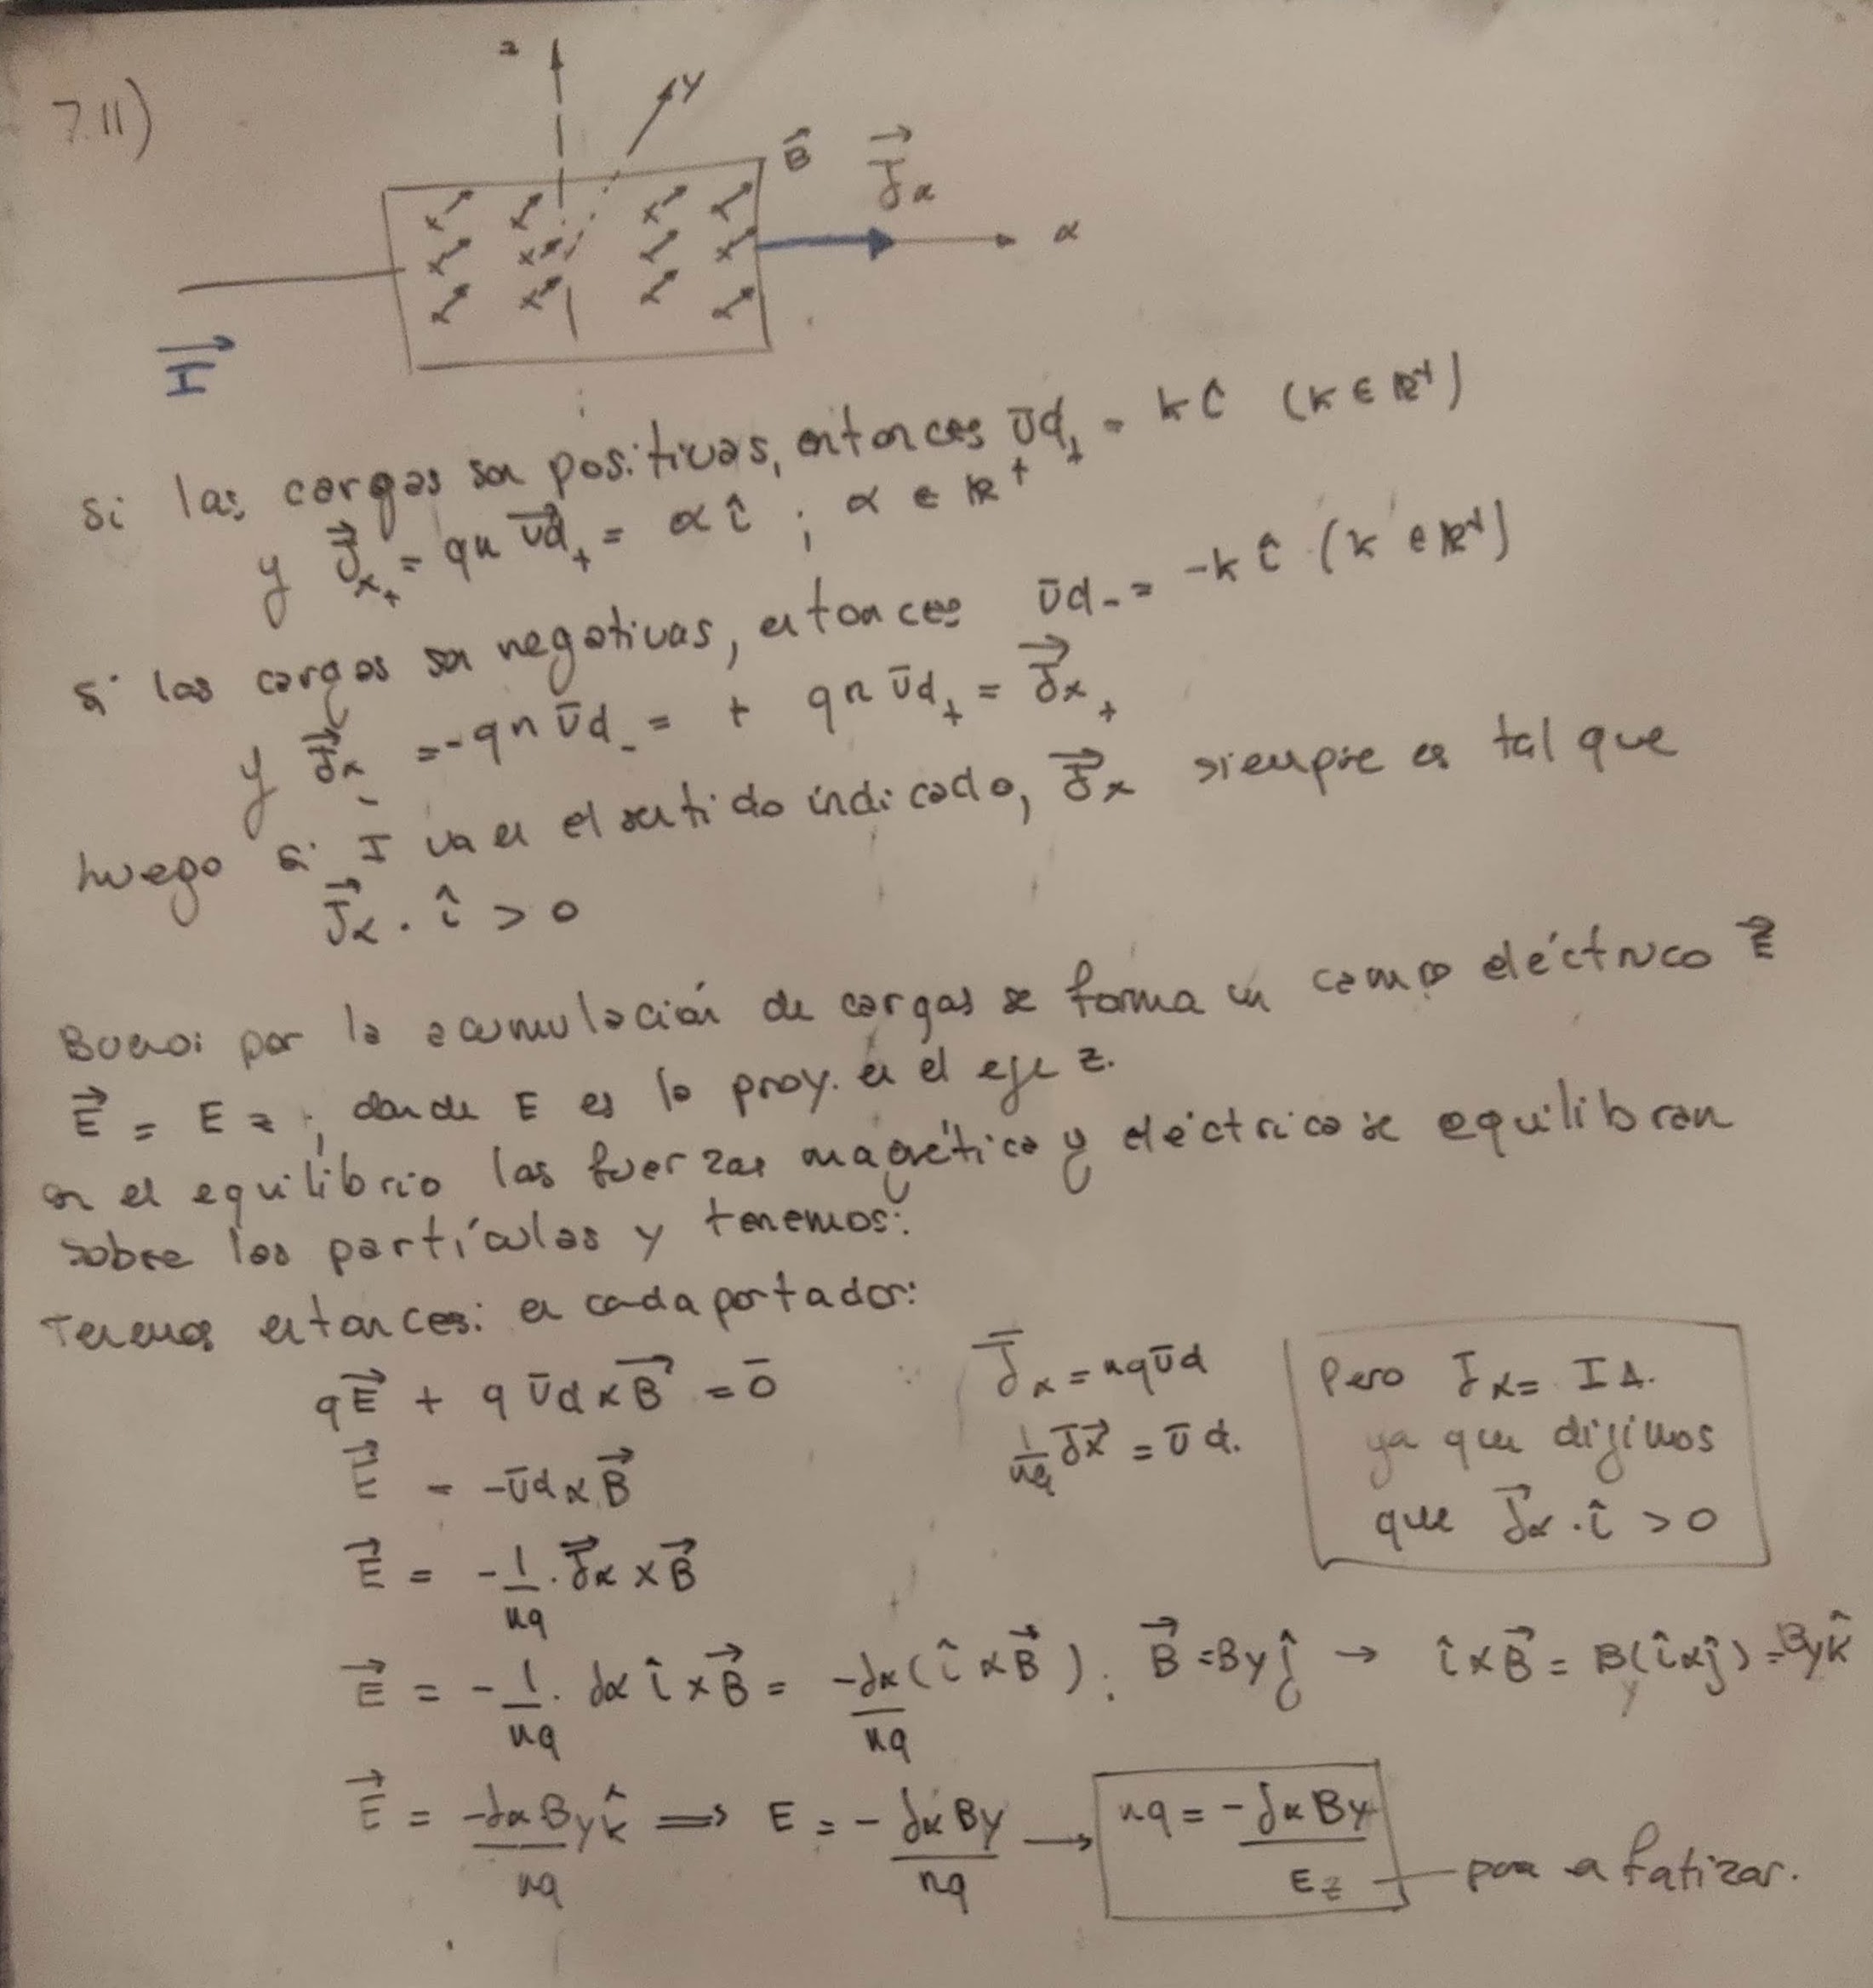 7.11)
z
y
B⃗ J⃗x
x
I⃗
Si las cargas son positivas, entonces v̄d₊ = k î (k ∈ ℝ⁺)
y J⃗x₊ = qn v⃗d₊ = α î ; α ∈ ℝ⁺
Si las cargas son negativas, entonces v̄d₋ = -k î (k ∈ ℝ⁺)
y J⃗x₋ = -qn v̄d₋ = + qn v̄d₊ = J⃗x₊
luego si I va en el sentido indicado, J⃗x siempre es tal que
J⃗x . î > 0
Bueno: por la acumulación de cargas se forma un campo eléctrico E⃗
E⃗ = E z ; donde E es la proy. en el eje z.
en el equilibrio las fuerzas magnética y eléctrica se equilibran
sobre las partículas y tenemos:
Tenemos entonces: en cada portador:
qE⃗ + q v̄d x B⃗ = 0̄
J̄x = nq v̄d
Pero Jx = I A.
E⃗ = -v̄d x B⃗
1/nq J⃗x = v̄d.
ya que dijimos
que J⃗x . î > 0
E⃗ = -1/nq . J⃗x x B⃗
E⃗ = -1/nq . Jx î x B⃗ = -Jx/nq (î x B⃗) . B⃗ = By ĵ → î x B⃗ = By (î x ĵ) = By k̂
E⃗ = -Jx By/nq k̂ ⟹ E = - Jx By/nq → nq = - Jx By/Ez para enfatizar.